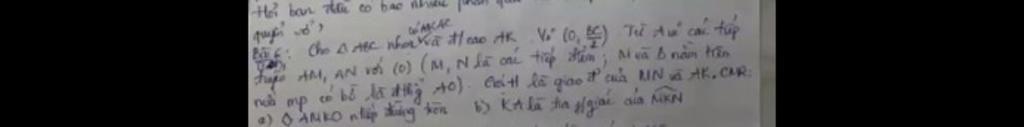 Hỏi ban đầu có bao nhiêu phần quà
quyển vở?
Bài 5: Cho Δ ABC nhọn và đ/cao AK. Vẽ (O, BC/2). Từ A vẽ các tiếp
tuyến AM, AN với (O) (M, N là các tiếp điểm; M và B nằm trên
nửa mp có bờ là đ/thg AO). Gọi H là giao đ' của MN và AK. CMR:
a) ◇ AMKO nội tiếp đường tròn b) KA là tia p/giác của MKN